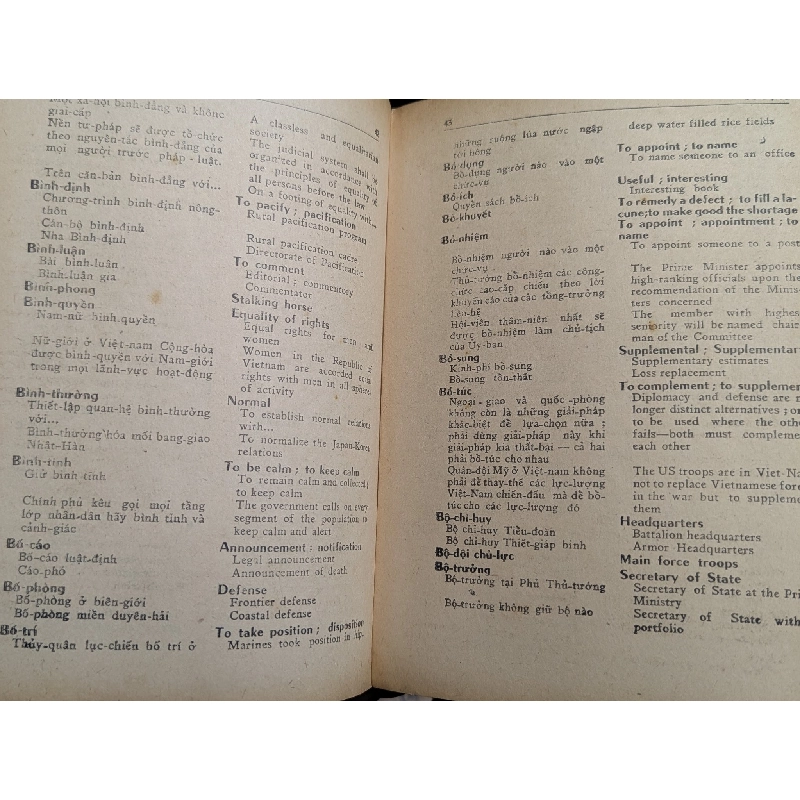 Một xã-hội bình-đẳng và không
giai-cấp
Nền tư-pháp sẽ được tổ-chức
theo nguyên-tắc bình-đẳng của
mọi người trước pháp-luật.
Trên căn-bản bình-đẳng với...
Bình-định
Chương-trình bình-định nông-
thôn
Cán-bộ bình-định
Nha Bình-định
Bình-luận
Bài bình-luận
Bình-luận gia
Bình-phong
Bình-quyền
Nam-nữ bình-quyền
Nữ-giới ở Việt-nam Cộng-hòa
được bình-quyền với Nam-giới
trong mọi lãnh-vực hoạt-động
Bình-thường
Thiết-lập quan-hệ bình-thường
với...
Bình-thường hóa mối bang-giao
Nhật-Hàn
Bình-tĩnh
Giữ bình-tĩnh
Chính phủ kêu gọi mọi tầng
lớp nhân-dân hãy bình tĩnh và
cảnh-giác
Bố-cáo
Bố-cáo luật-định
Cáo-phó
Bố-phòng
Bố-phòng ở biên-giới
Bố-phòng miền duyên-hải
Bố-trí
Thủy-quân lục-chiến bố trí ở
A classless and equalitarian
society
The judicial system shall be
organized in accordance with
the principles of equality of
all persons before the law
On a footing of equality with...
To pacify ; pacification
Rural pacification program
Rural pacification cadre
Directorate of Pacification
To comment
Editorial ; commentary
Commentator
Stalking horse
Equality of rights
Equal rights for men and
women
Women in the Republic of
Vietnam are accorded equal
rights with men in all spheres
of activity
Normal
To establish normal relations
with...
To normalize the Japan-Korea
relations
To be calm ; to keep calm
To remain calm and collected;
to keep calm
The government calls on every
segment of the population to
keep calm and alert
Announcement ; notification
Legal announcement
Announcement of death
Defense
Frontier defense
Coastal defense
To take position ; disposition
Marines took position in
43
những ruộng lúa nước ngập
tới hông
Bổ-dụng
Bổ-dụng người nào vào một
chức-vụ
Bổ-ích
Quyển sách bổ-ích
Bổ-khuyết
Bổ-nhiệm
Bổ-nhiệm người nào vào một
chức-vụ
Thủ-tướng bổ-nhiệm các công-
chức cao-cấp chiếu theo lời
khuyến cáo của các tổng-trưởng
liên-hệ
Hội-viên thâm-niên nhất sẽ
được bổ-nhiệm làm chủ-tịch
của Ủy-ban
Bổ-sung
Kinh-phí bổ-sung
Bổ-sung tổn-thất
Bổ-túc
Ngoại-giao và quốc-phòng
không còn là những giải-pháp
khác-biệt để lựa-chọn nữa ;
phải dùng giải-pháp này khi
giải-pháp kia thất-bại — cả hai
phải bổ-túc cho nhau
Quân-đội Mỹ ở Việt-nam không
phải để thay-thế các lực-lượng
Việt-Nam chiến-đấu mà để bổ-
túc cho các lực-lượng đó
Bộ-chỉ-huy
Bộ chỉ-huy Tiểu-đoàn
Bộ chỉ-huy Thiết-giáp binh
Bộ-đội chủ-lực
Bộ-trưởng
Bộ-trưởng tại Phủ Thủ-tướng
Bộ-trưởng không giữ bộ nào
deep water filled rice fields
To appoint ; to name
To name someone to an office
Useful ; interesting
Interesting book
To remedy a defect ; to fill a la-
cune;to make good the shortage
To appoint ; appointment ; to
name
To appoint someone to a post
The Prime Minister appoints
high-ranking officials upon the
recommendation of the Minis-
ters concerned
The member with highest
seniority will be named chair-
man of the Committee
Supplemental ; Supplementary
Supplementary estimates
Loss replacement
To complement ; to supplement
Diplomacy and defense are no
longer distinct alternatives ;
to be used where the other
fails—both must complement
each other
The US troops are in Viet-Nam
not to replace Vietnamese forces
in the war but to supplement
them
Headquarters
Battalion headquarters
Armor Headquarters
Main force troops
Secretary of State
Secretary of State at the Prime
Ministry
Secretary of State without
portfolio